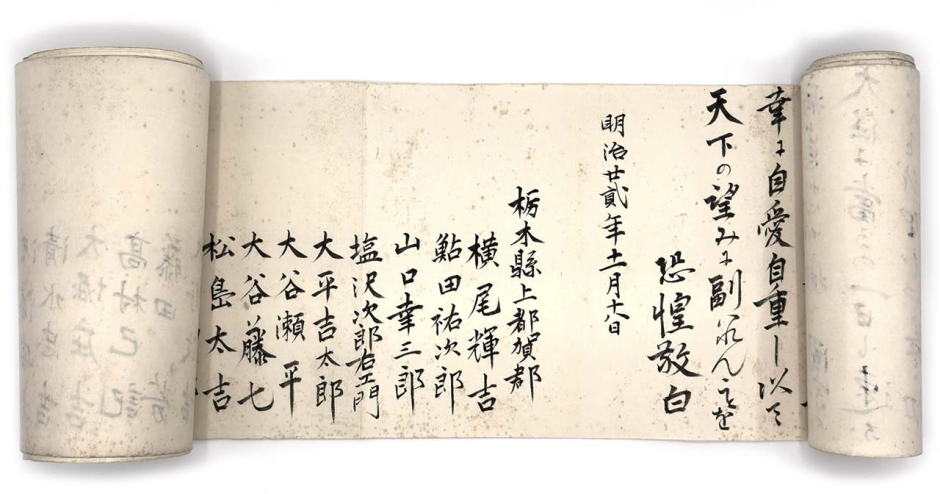 幸に自愛自重し以て
天下の望みに副はんことを
恐惶敬白
明治廿貳年十一月十一日
栃木縣上都賀郡
横尾輝吉
鮎田祐次郎
山口幸三郎
塩沢次郎右エ門
大平吉太郎
大谷瀬平
大谷藤七
松島太吉